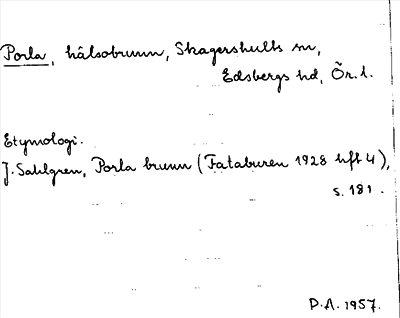 Porla, hälsobrunn, Skagershults sn,
Edsbergs hd, Ör. l.
Etymologi.
J. Sahlgren, Porla brunn (Fataburen 1928 hft 4),
s. 181.
P.A. 1957.